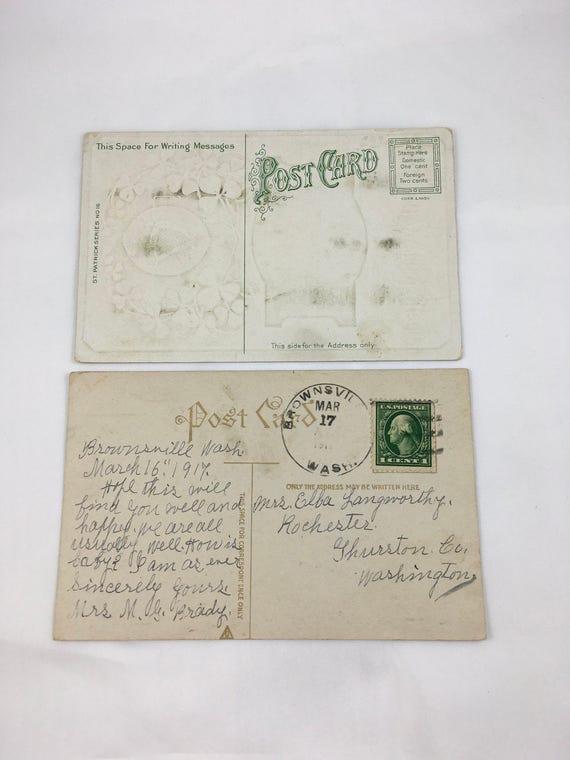 This Space For Writing Messages
POST CARD
Place
Stamp Here
Domestic
One cent
Foreign
Two cents
ST. PATRICK SERIES NO. 16
This side for the Address only
Post Card
BROWNSVIL
MAR
17
WASH.
U.S. POSTAGE
1 CENT 1
ONLY THE ADDRESS MAY BE WRITTEN HERE
THIS SPACE FOR CORRESPONDENCE ONLY
Brownsville Wash
March 16" 1917.
Hope this will
find you well and
happy. we are all
usually well. How is
baby? I am as ever
Sincerely yours.
Mrs M. G. Brady.
Mrs. Elba Langworthy.
Rochester
Thurston Co.
Washington